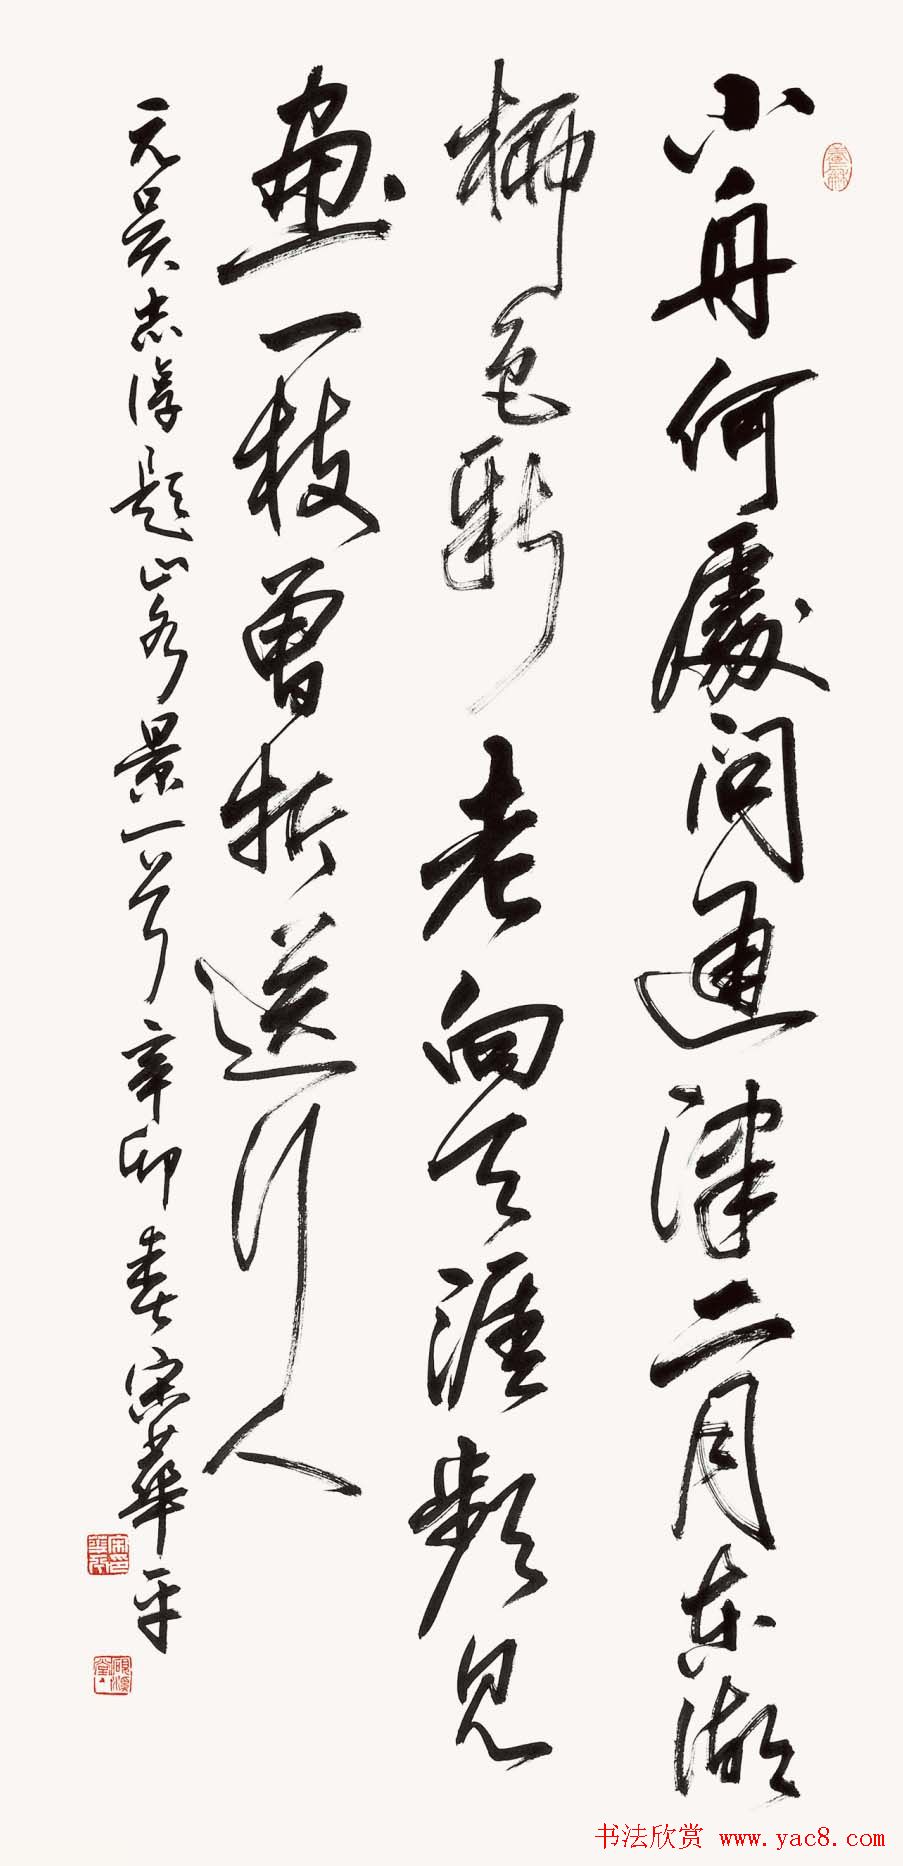 小舟何處問通津二月東湖
柳色新老向天涯頻見
畫一枝曾折送行人
元吴志淳題山水景一首辛卯春宋華平
书法欣赏 www.yac8.com